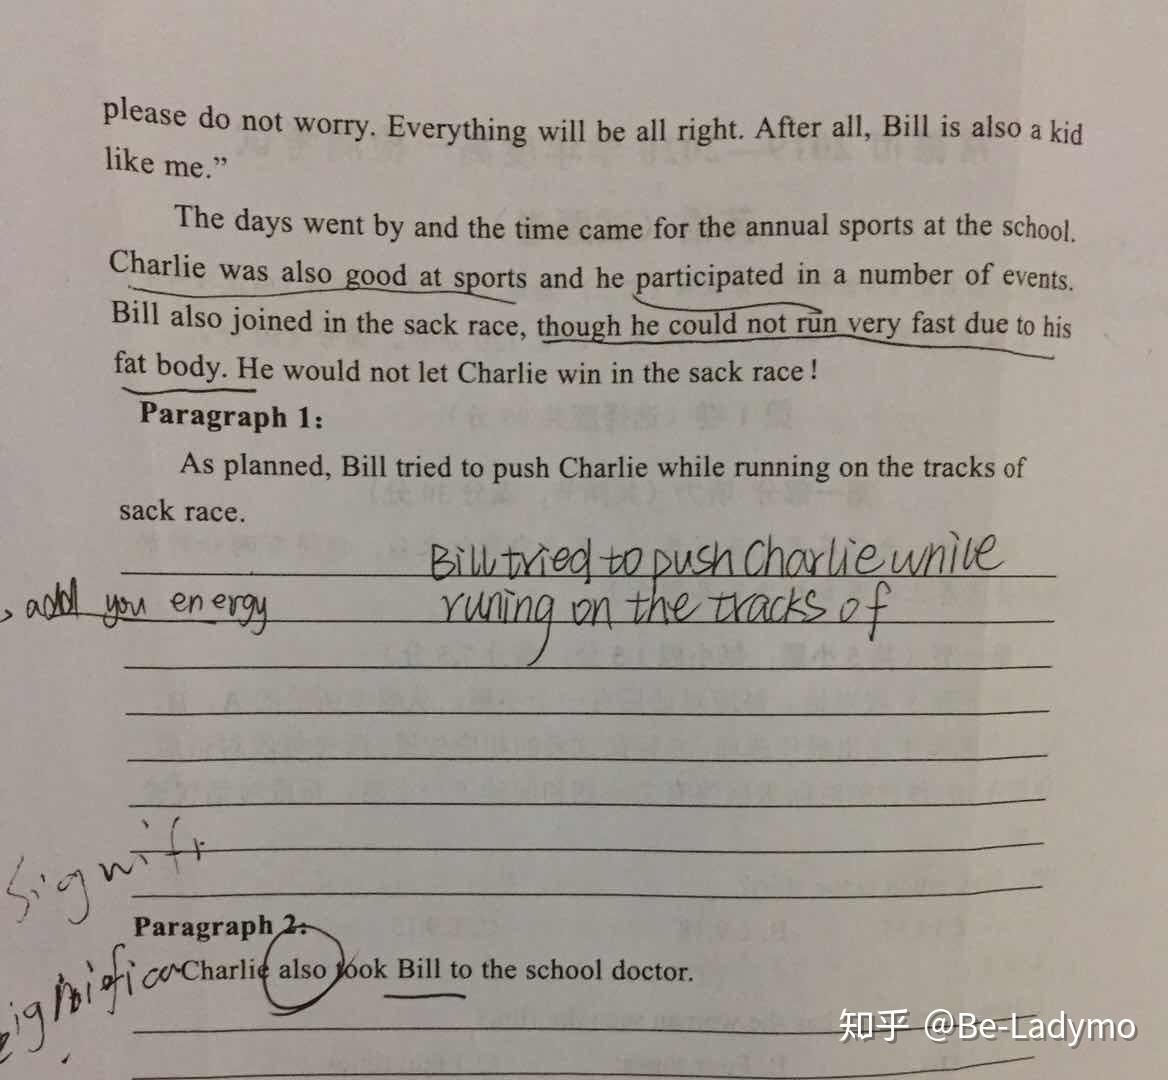 please do not worry. Everything will be all right. After all, Bill is also a kid
like me.”
The days went by and the time came for the annual sports at the school.
Charlie was also good at sports and he participated in a number of events.
Bill also joined in the sack race, though he could not run very fast due to his
fat body. He would not let Charlie win in the sack race!
Paragraph 1:
As planned, Bill tried to push Charlie while running on the tracks of
sack race.
Bill tried to push Charlie while
, add you energy
runing on the tracks of
Signifi
Paragraph 2:
Charlie also took Bill to the school doctor.
significa
知乎 @Be-Ladymo